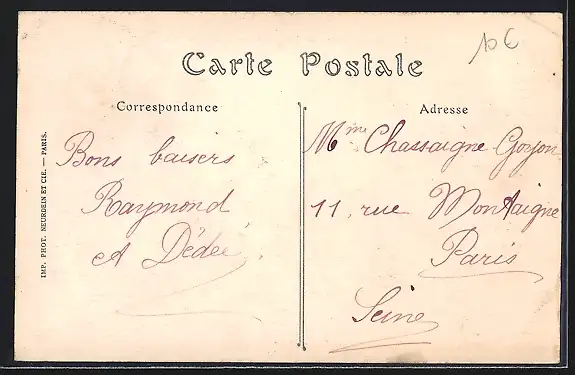 Carte Postale
Correspondance
Adresse
Bons baisers
Raymond
et Dédée
Mme Chassaigne Goyon
11, rue Montaigne
Paris
Seine
IMP. PHOT. NEURDEIN ET CIE. — PARIS.